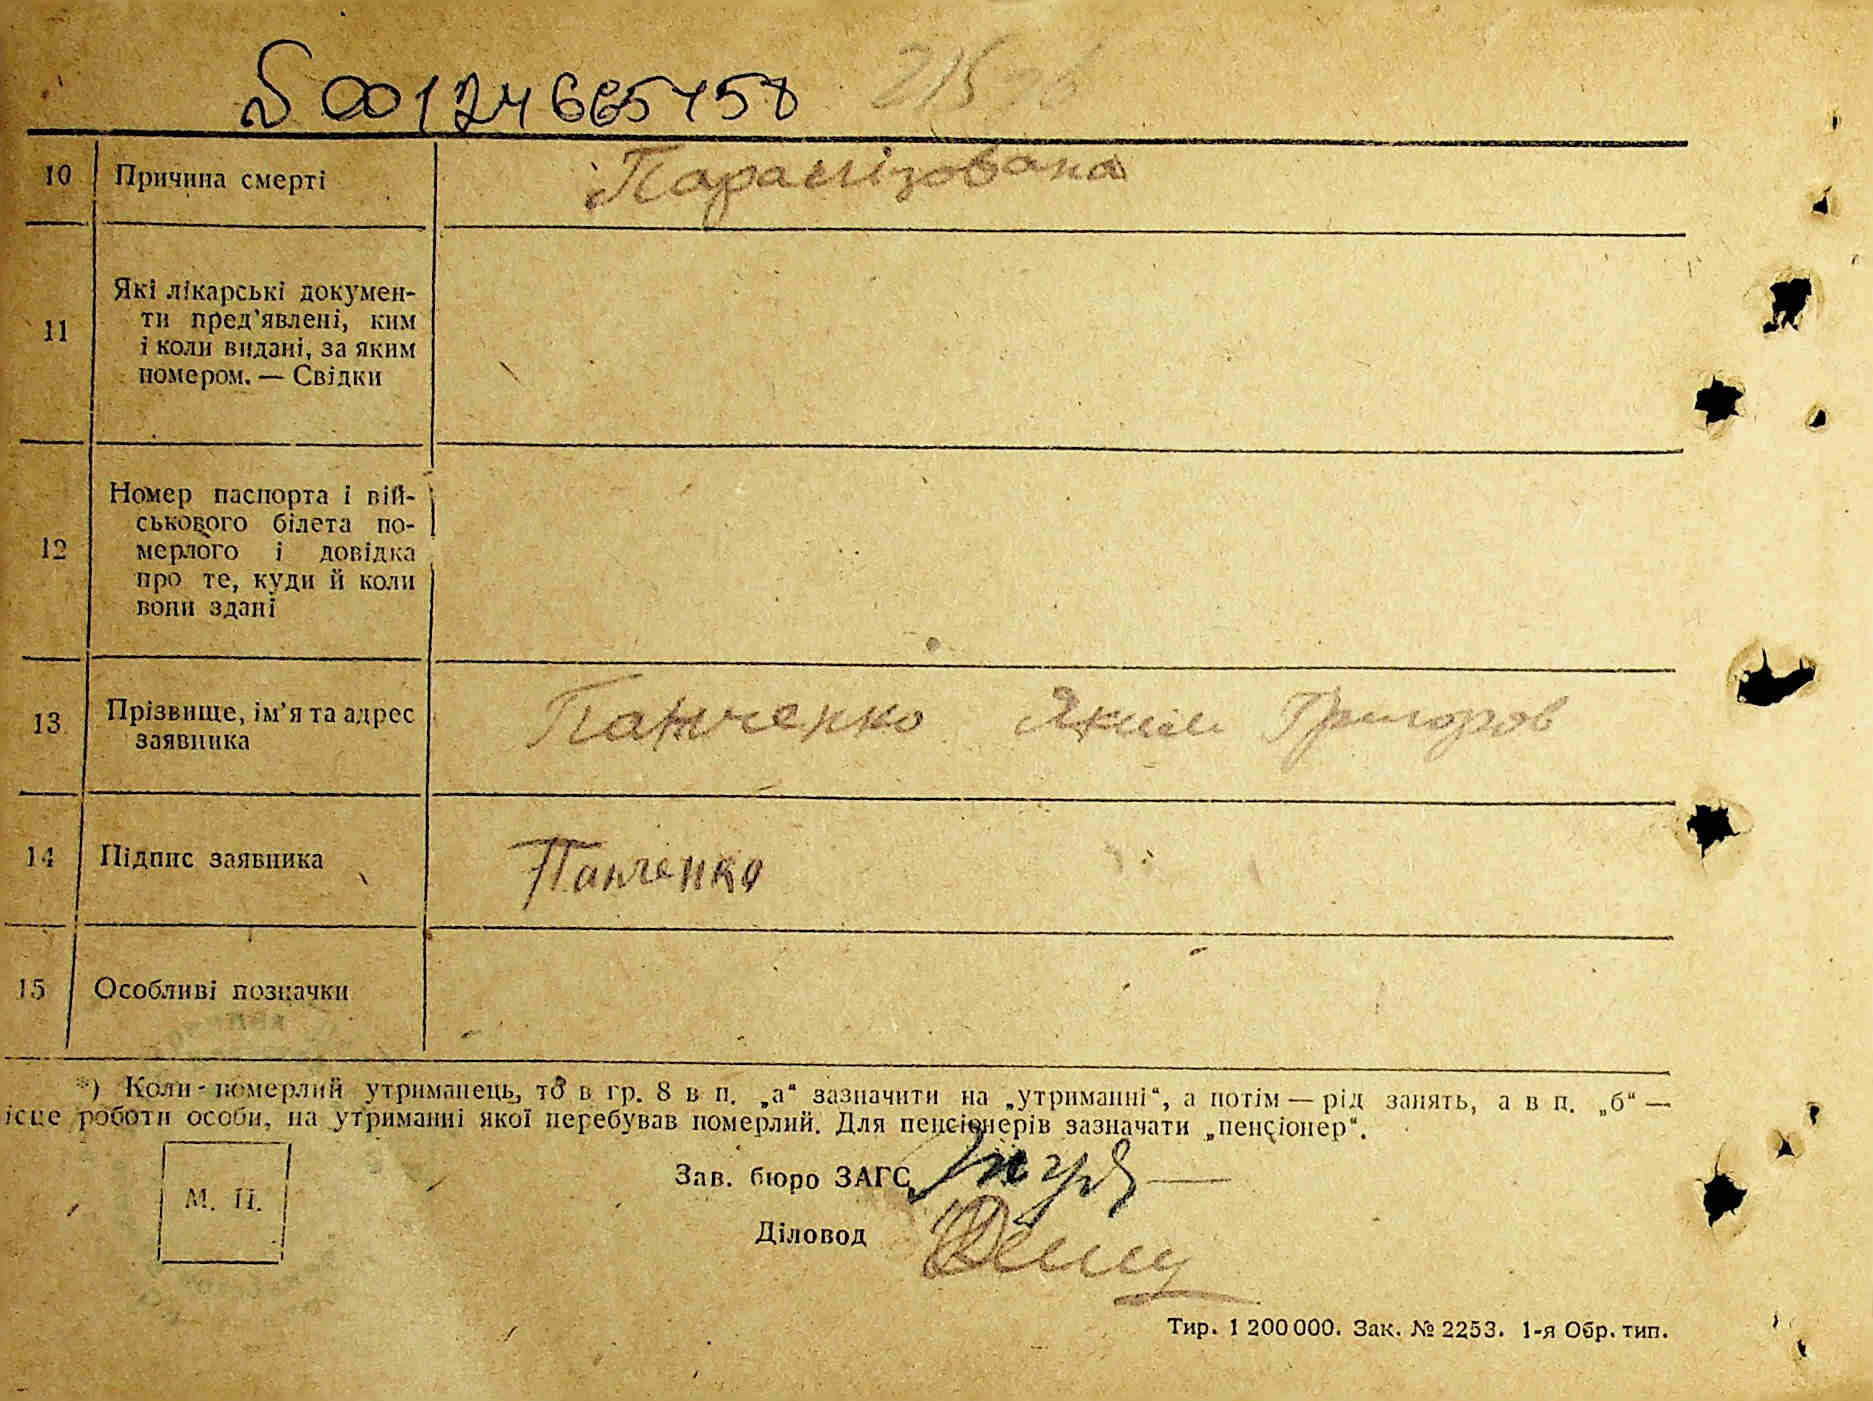 10 Причина смерті Паралізована
11 Які лікарські докумен-
ти пред’явлені, ким
і коли видані, за яким
номером. — Свідки
12 Номер паспорта і вій-
ськового білета по-
мерлого і довідка
про те, куди й коли
вони здані
13 Прізвище, ім’я та адрес
заявника
Панченко Яким Григоров
14 Підпис заявника Панченко
15 Особливі позначки
*) Коли померлий утриманець, то в гр. 8 в п. „а“ зазначити на „утриманні“, а потім — рід занять, а в п. „б“ —
ісце роботи особи, на утриманні якої перебував померлий. Для пенсіонерів зазначати „пенсіонер“.
М. П.
Зав. бюро ЗАГС
Діловод
Тир. 1 200 000. Зак. № 2253. 1-я Обр. тип.